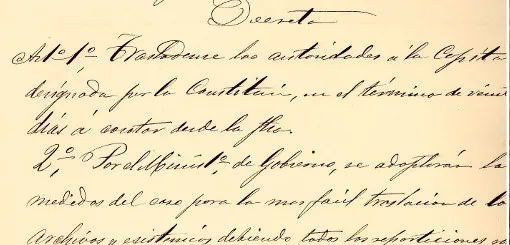 Decreta
Art.º 1.º Trasládense las autoridades á la Capital
designada por la Constitucion, en el término de veinte
días á contar desde la fha.
2.º Por el Minist.º de Gobierno, se adoptarán las
medidas del caso para la mas fácil traslacion de los
archivos y existencias debiendo todas las reparticiones